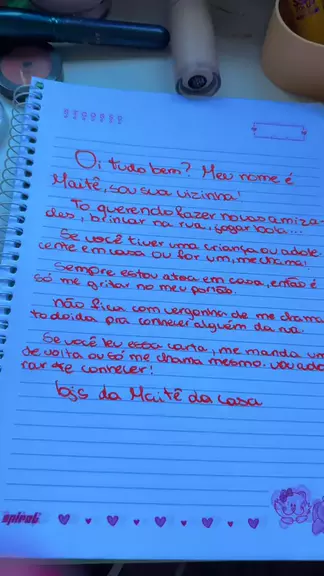 Oi tudo bem? Meu nome é
Maitê, sou sua vizinha!
To querendo fazer novas amiza
des, brincar na rua, jogar bola...
Se você tiver uma criança ou adole
cente em casa ou for um, me chama!
Sempre estou atoa em casa, então é
só me gritar no meu portão.
não fica com vergonha de me chama
to doida pra conhecer alguém da rua.
Se você leu essa carta, me manda um
de volta ou só me chama mesmo, vou ado
rar te conhecer!
bjs da Maitê da casa
spiral